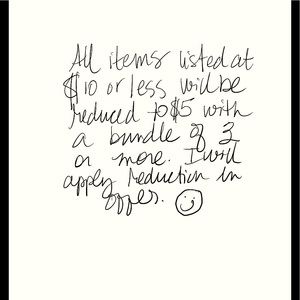 All items listed at
$10 or less will be
reduced to $5 with
a bundle of 3
or more. I will
apply reduction in
offer. :)